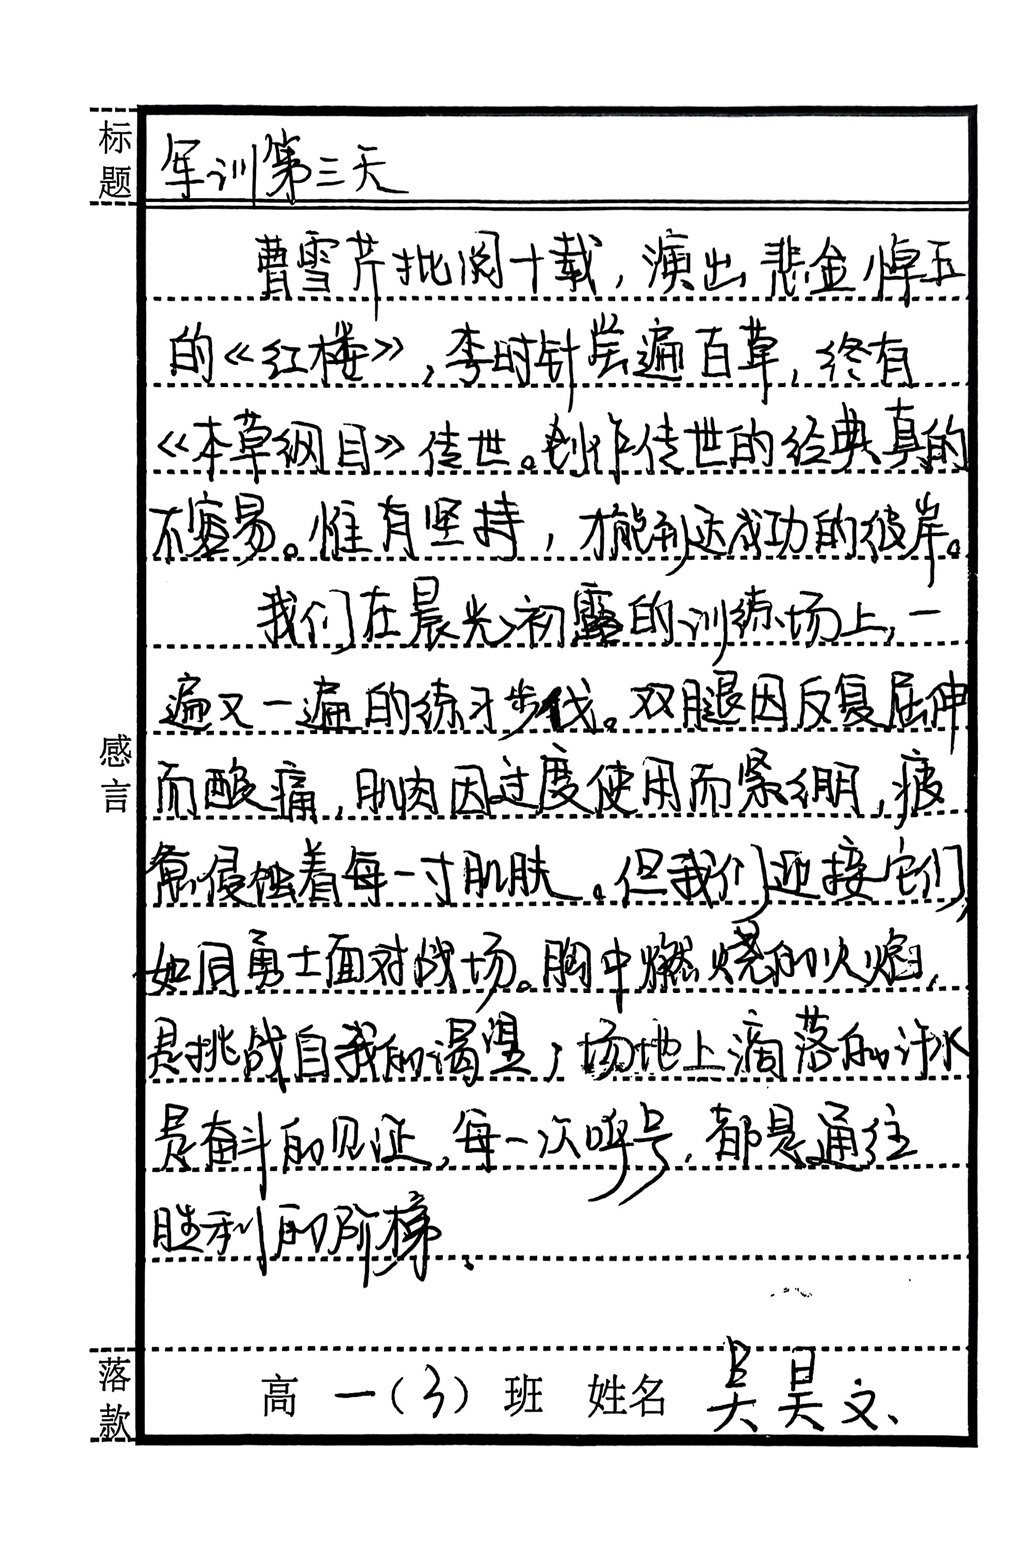 标题
军训第三天
曹雪芹批阅十载，演出悲金悼玉
的《红楼》，李时针尝遍百草，终有
《本草纲目》传世。创作传世的经典真的
不容易。惟有坚持，才能到达成功的彼岸。
我们在晨光初露的训练场上，一
遍又一遍的练习步伐。双腿因反复屈伸
而酸痛，肌肉因过度使用而紧绷，疲
惫侵蚀着每一寸肌肤。但我们迎接它们，
如同勇士面对战场。胸中燃烧的火焰，
是挑战自我的渴望，场地上滴落的汗水
是奋斗的见证，每一次呼号，都是通往
胜利的阶梯。
感言
落款
高一（3）班 姓名 吴昊文